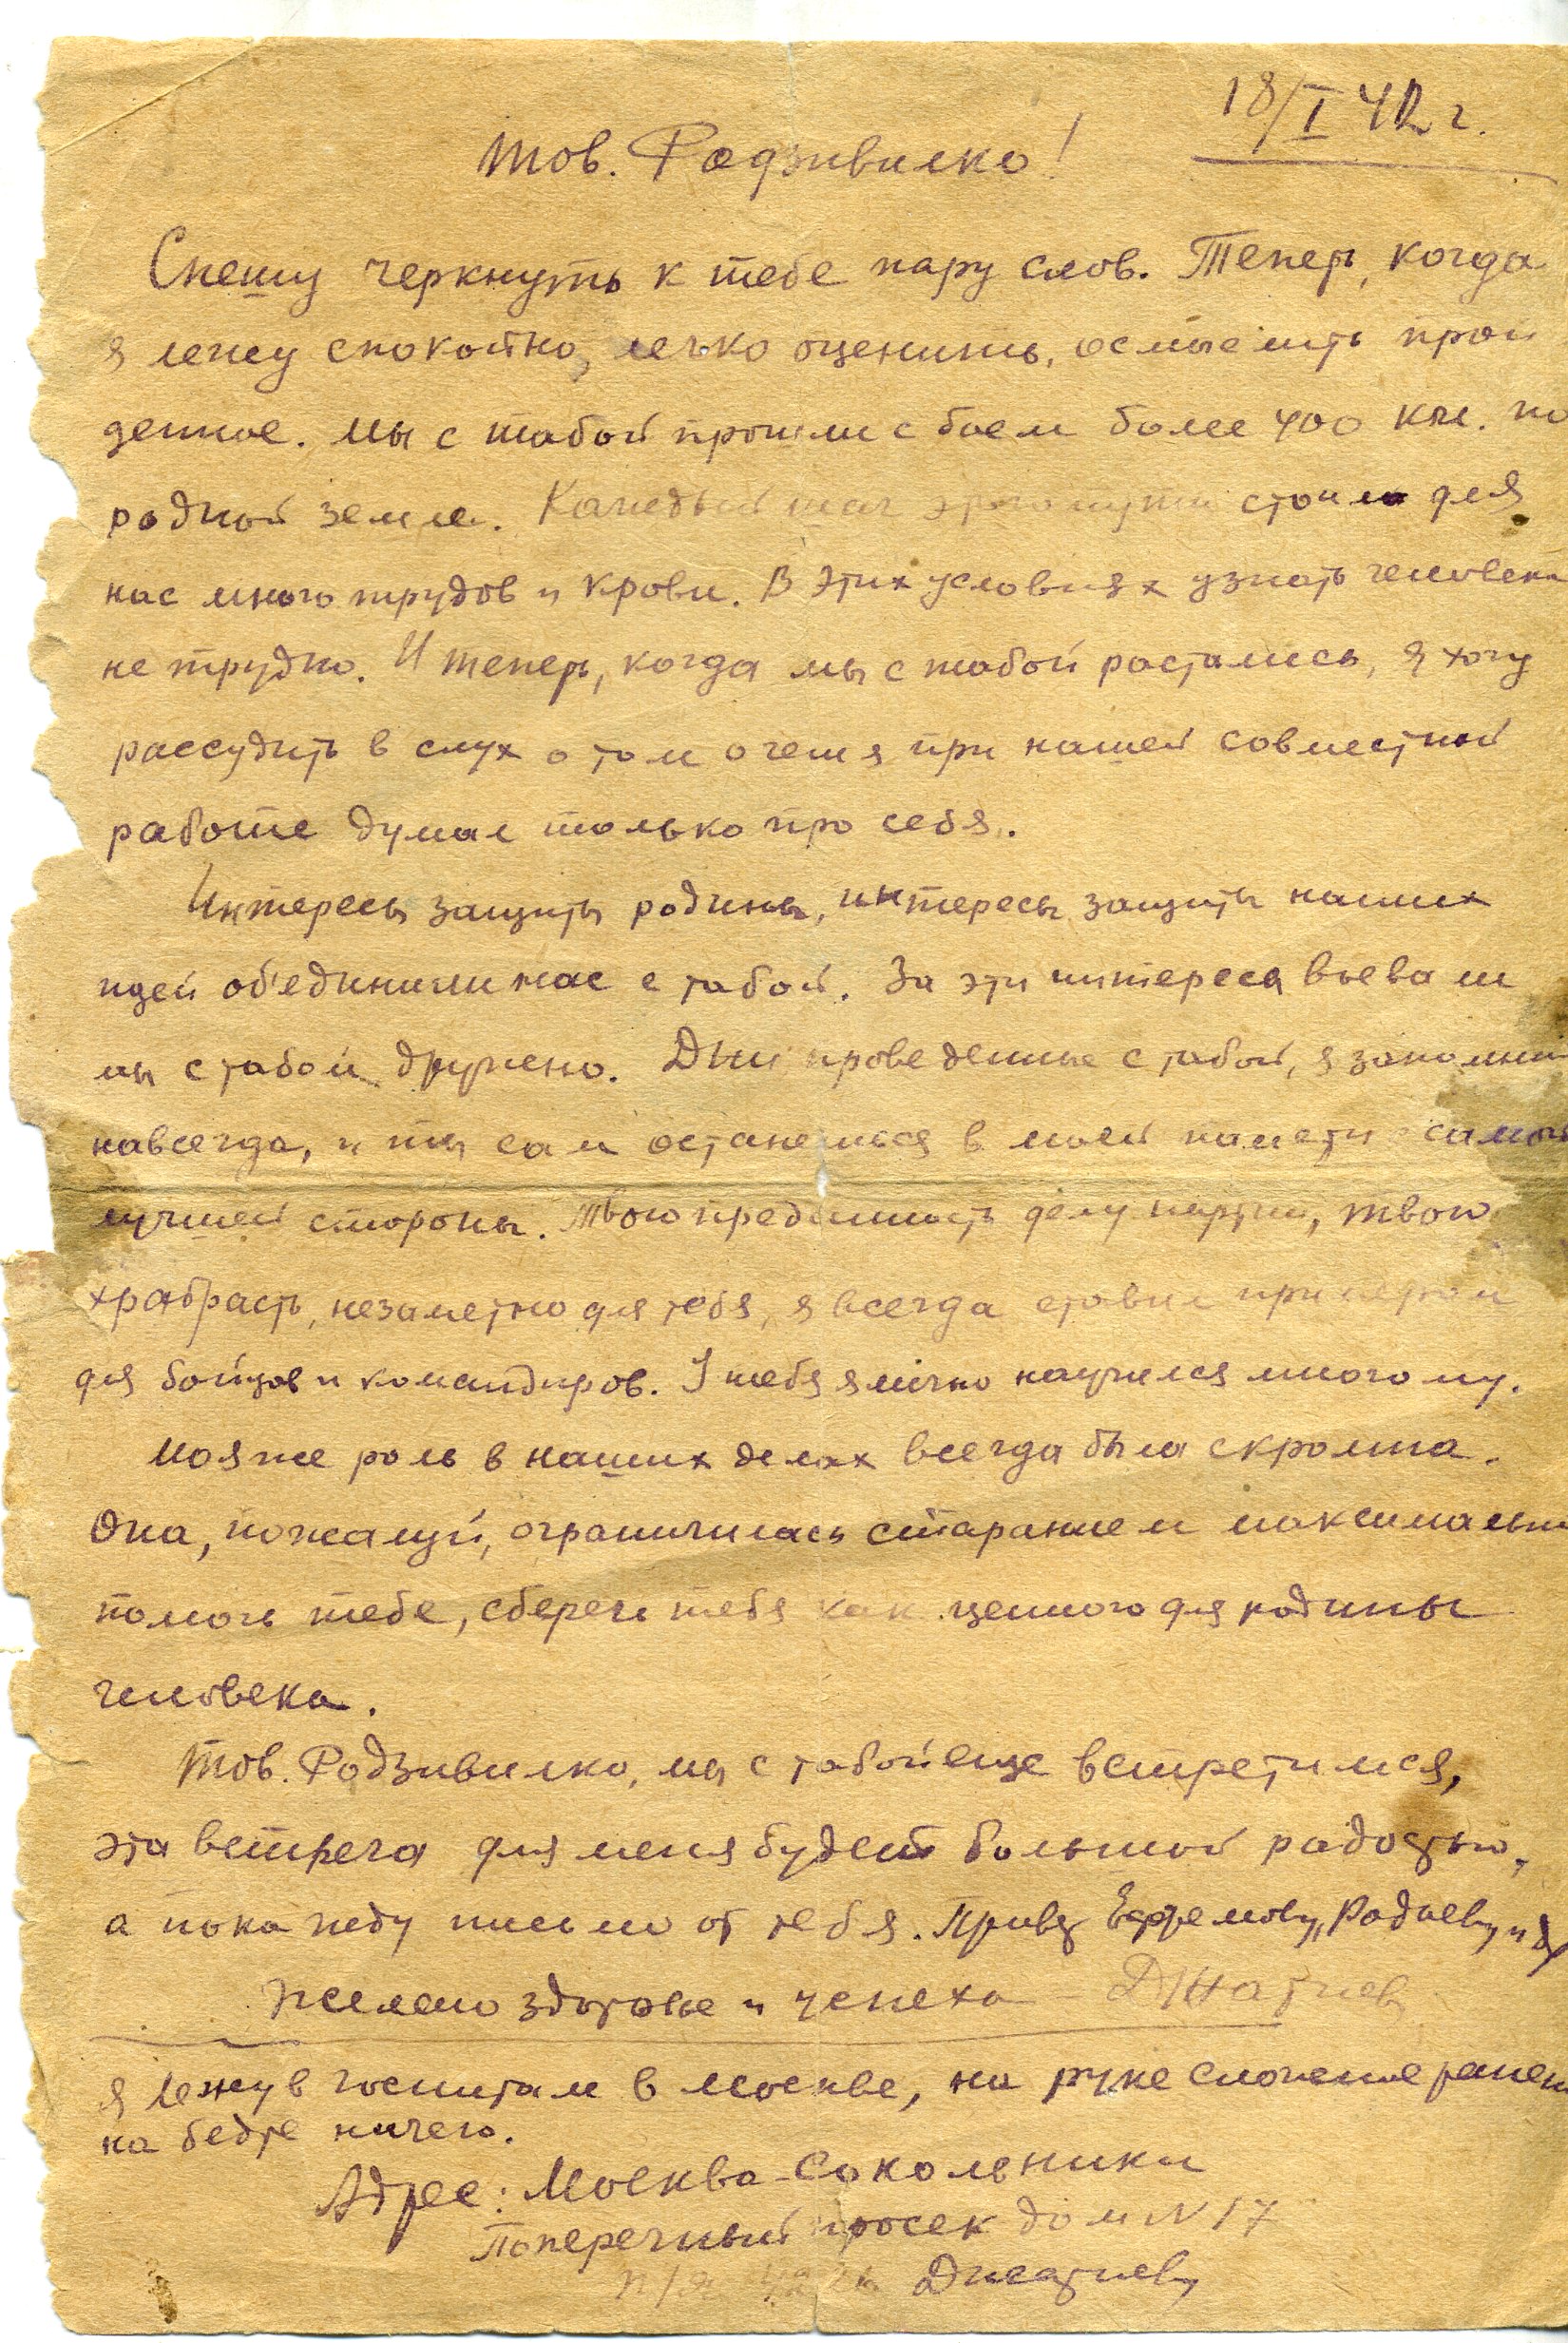 18/I 42 г.
Тов. Родзивилко!
Спешу черкнуть к тебе пару слов. Теперь, когда
я лежу спокойно, легко оценить, осмыслить прой
денное. Мы с тобой прошли с боем более 400 км. по
родной земле. Каждый шаг этого пути стоило для
нас много трудов и крови. В этих условиях узнать человека
не трудно. И теперь, когда мы с тобой растались, я хочу
рассудить в слух о том о чем я при нашей совместной
работе думал только про себя.
Интересы защиты родины, интересы защиты наших
идей об'единили нас с тобой. За эти интересы воевали
мы с тобой дружно. Дни проведенные с тобой, я запомню
навсегда, и ты сам останешься в моей памети самой
лучшей стороны. Твою преданность делу партии, твою
храбрасть, незаметно для тебя, я всегда ставил примером
для бойцов и командиров. У тебя я лично научился многому.
Моя же роль в наших делах всегда была скромна.
Она, пожалуй, ограничилась старанием максимально
помочь тебе, сберечь тебя как ценного для родины
человека.
Тов. Родзивилко, мы с тобой еще встретимся,
эта встреча для меня будет большой радостью,
а пока жду письмо от тебя. Привет Ефремову, Радаеву и др
Желаю здоровье и успеха Джатиев
Я лежу в госпитале в Москве, на руке сложение ранен
на бедре ничего.
Адрес: Москва-Сокольники
Поперечный просек дом N 17
п/я Джатиеву